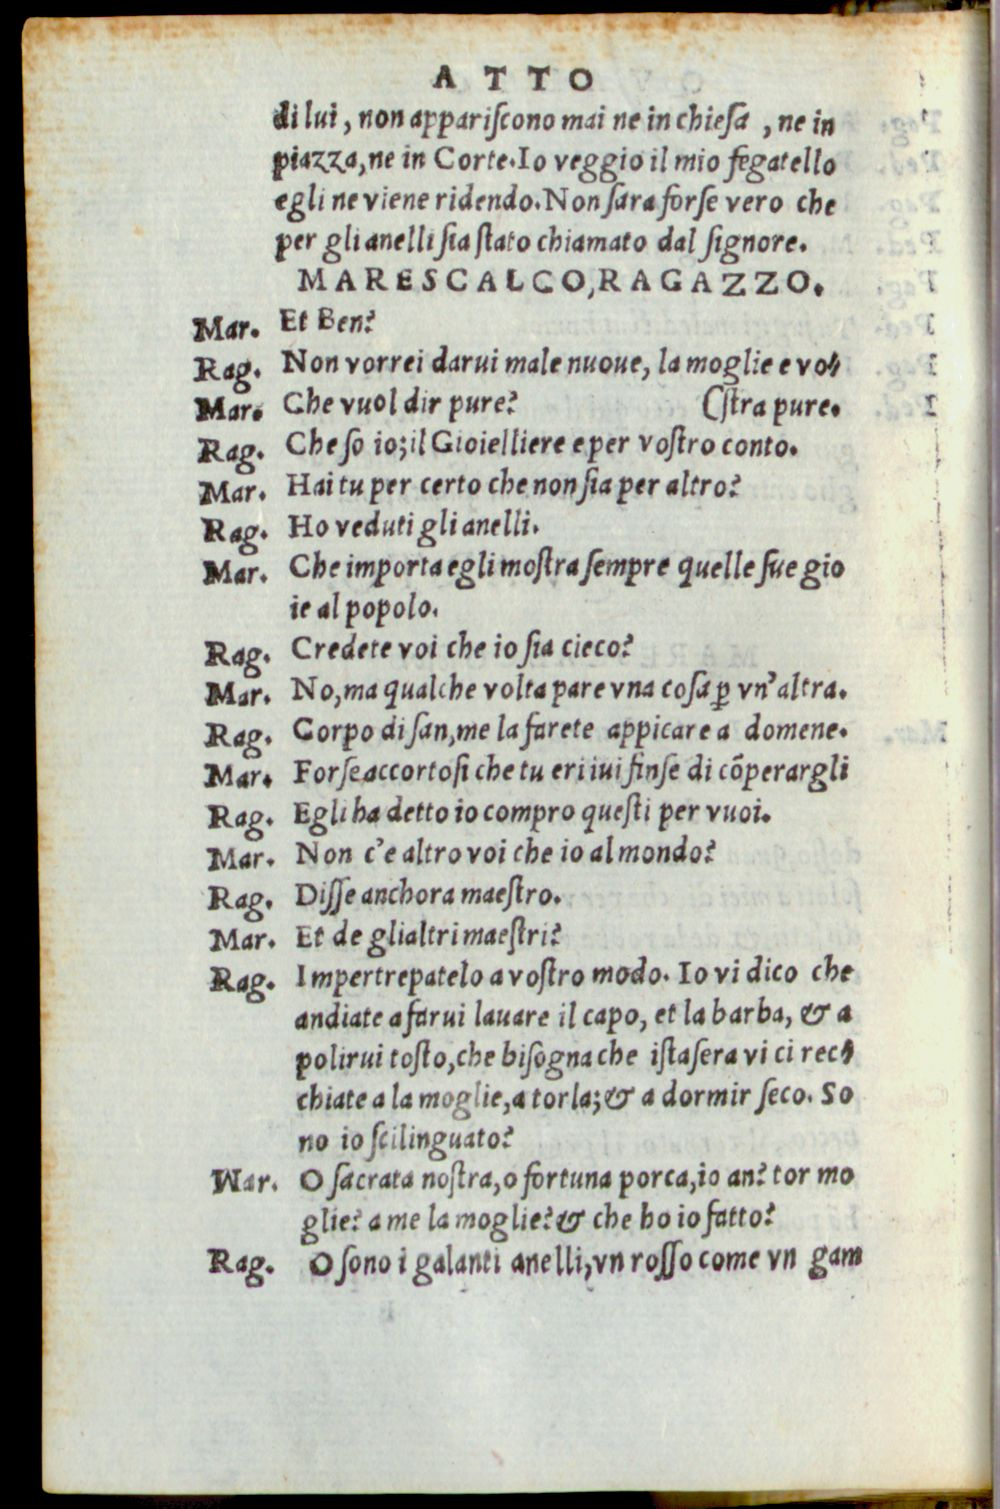 ATTO
di lui, non appariscono mai ne in chiesa, ne in
piazza, ne in Corte. Io veggio il mio fegatello
egli ne viene ridendo. Non sara forse vero che
per gli anelli sia stato chiamato dal signore.
MARESCALCO, RAGAZZO.
Mar. Et Ben?
Rag. Non vorrei darui male nuoue, la moglie e vo-
Mar. Che vuol dir pure? (stra pure.
Rag. Che so io; il Gioielliere e per vostro conto.
Mar. Hai tu per certo che non sia per altro?
Rag. Ho veduti gli anelli.
Mar. Che importa egli mostra sempre quelle sue gio
ie al popolo.
Rag. Credete voi che io sia cieco?
Mar. No, ma qualche volta pare vna cosa ꝑ vn'altra.
Rag. Corpo di san, me la farete appicare a domene.
Mar. Forse accortosi che tu eri iui finse di cōperargli
Rag. Egli ha detto io compro questi per vuoi.
Mar. Non c'e altro voi che io al mondo?
Rag. Disse anchora maestro.
Mar. Et de glialtri maestri?
Rag. Impertrepatelo a vostro modo. Io vi dico che
andiate a farui lauare il capo, et la barba, & a
polirui tosto, che bisogna che istasera vi ci rec-
chiate a la moglie, a torla; & a dormir seco. So
no io scilinguato?
Mar. O sacrata nostra, o fortuna porca, io an? tor mo
glie? a me la moglie? & che ho io fatto?
Rag. O sono i galanti anelli, vn rosso come vn gam